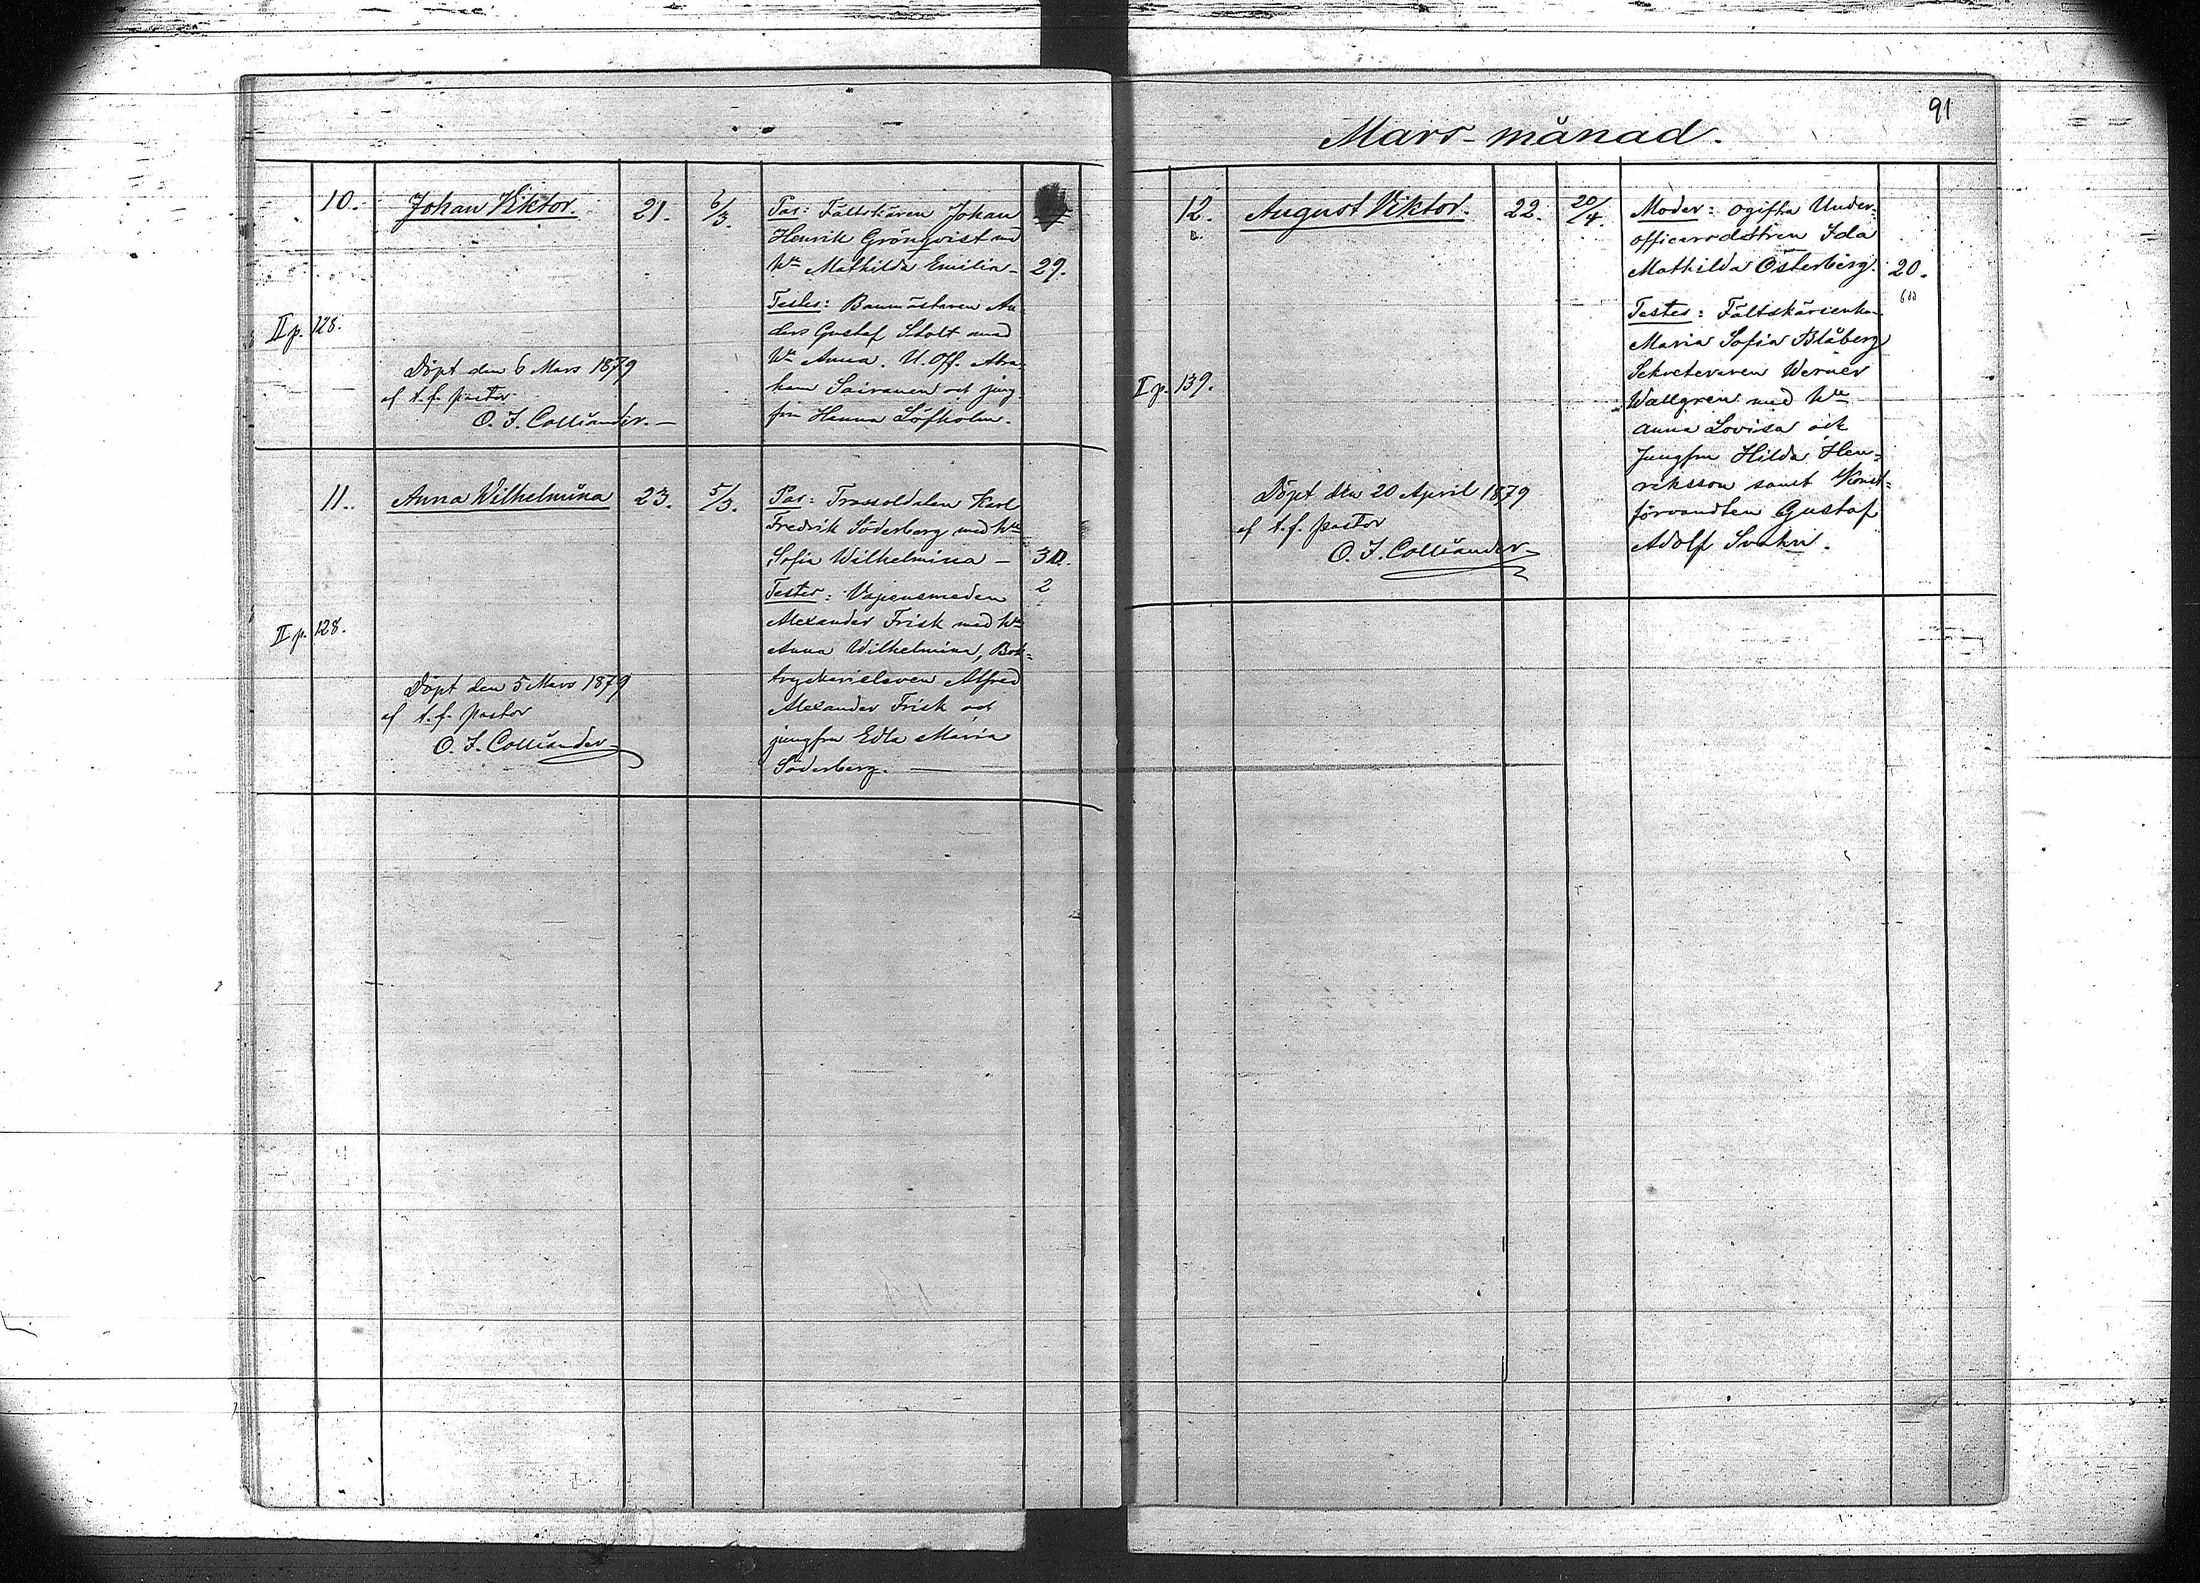 10.
Johan Viktor.
21.
6/3.
Par: Fältskären Johan
Henrik Grönqvist md
Mathilda Emilia –
29.
Testes: Baumästaren An-
ders Gustaf Stolt med
Anna. U. Off. Abra-
ham Sairanen och jung-
fru Hanna Löfholm.
II p. 128.
Döpt den 6 Mars 1879
af t.f. pastor
O. I. Colliander. –
11.
Anna Wilhelmina
23.
5/3.
Par: Trossoldaten Karl
Fredrik Söderberg med
Sofia Wilhelmina –
2
Testes: Vapensmeden
Alexander Frisk med
Anna Wilhelmina, Bok-
tryckerieleven Alfred
Alexander Frisk och
jungfru Edla Maria
Söderberg. –
II p. 128.
Döpt den 5 Mars 1879
af t.f. pastor
O. I. Colliander
91
Mars-månad.
12.
August Viktor.
22.
20/4.
Moder: ogifta Under-
officersdottren Ida
Mathilda Österberg.
20.
Testes: Fältskärsenkan
Maria Sofia Blåberg
Sekreteraren Werner
Wallgren med
Anna Lovisa och
Jungfru Hilda Hen-
riksson samt Konst-
förvandten Gustaf
Adolf Svahn.
I p. 139.
Döpt den 20 April 1879
af t.f. pastor
O. I. Colliander